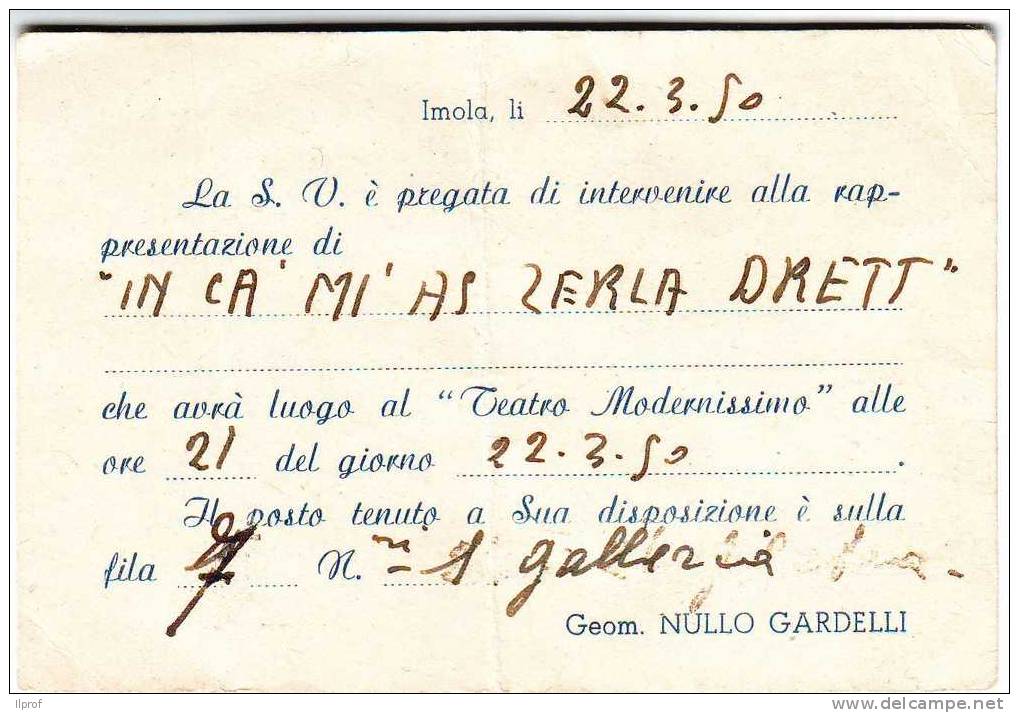 Imola, li 22.3.50
La S. V. è pregata di intervenire alla rap-
presentazione di
"IN CA' MI' AS ZERLA DRETT"
che avrà luogo al "Teatro Modernissimo" alle
ore 21 del giorno 22.3.50.
Il posto tenuto a Sua disposizione è sulla
fila N. 1 galleria
Geom. NULLO GARDELLI
Ilprof
www.delcampe.net